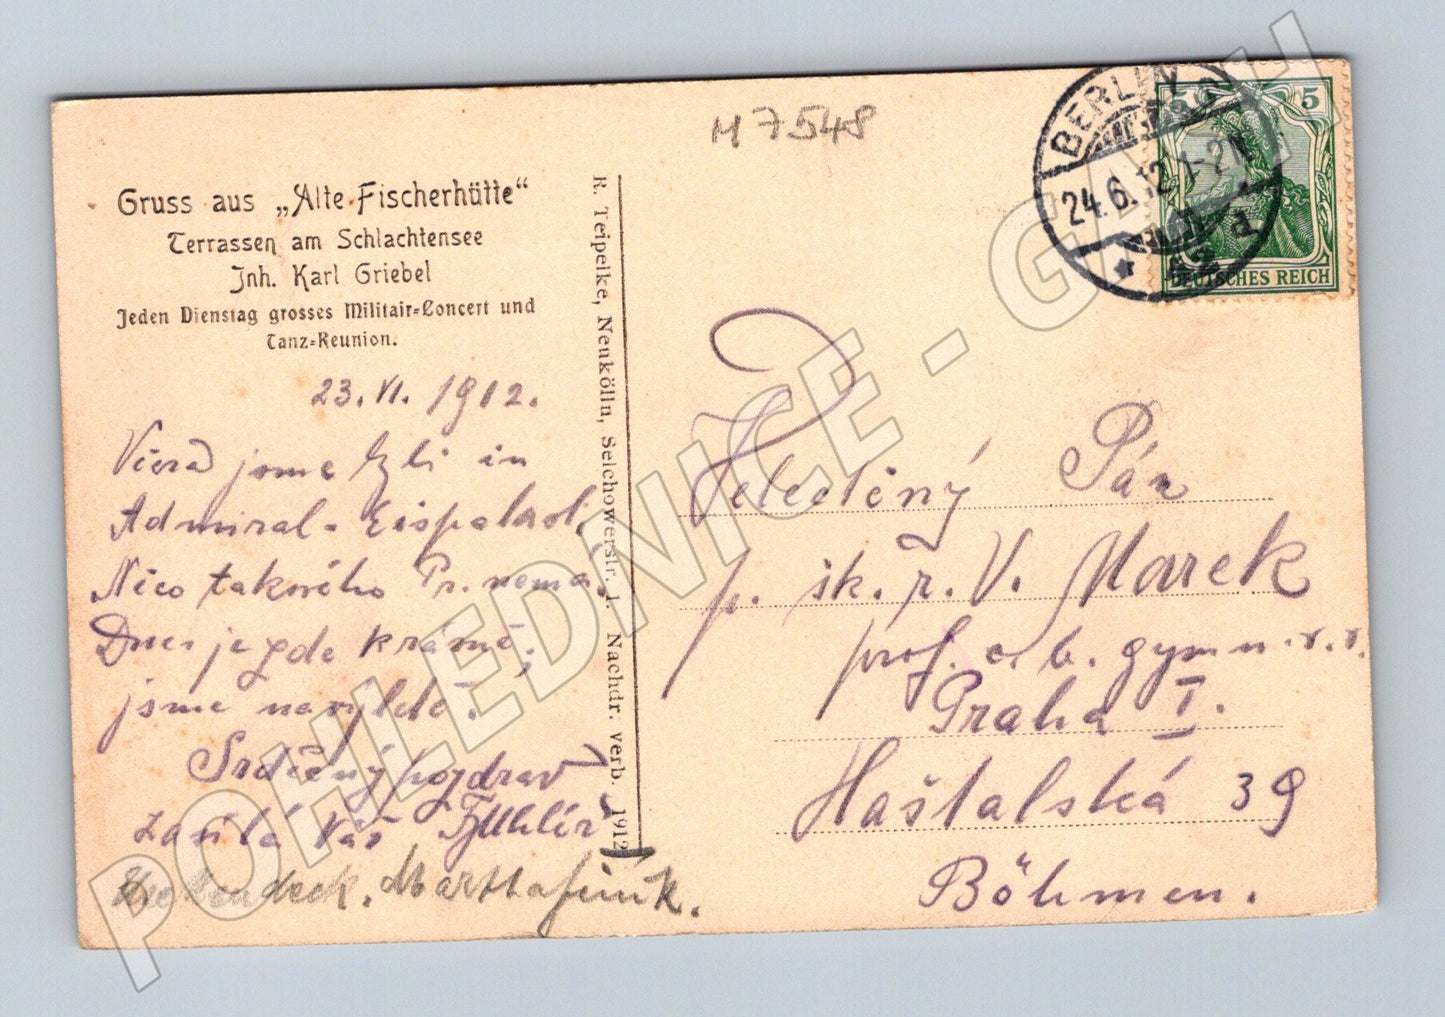 M 7548
Gruss aus „Alte Fischerhütte“
Terrassen am Schlachtensee
Jnh. Karl Griebel
Jeden Dienstag grosses Militair-Concert und
Tanz-Reunion.
23. VI. 1912.
Včera jsme byli in
Admiral-Eispalast,
Něco takového Pr. nemá.
Dnes je zde krásně,
jsme na výletě.
Srdečný pozdrav
zasílá Váš
R. Teipelke, Neukölln, Selchowerstr. 1. Nachdr. verb. 1912
BERLIN
24.6.12 1-2N
5 5
DEUTSCHES REICH
Velectěný Pán
p. šk. ř. V. Marek
prof. c. k. gymn. v. v.
Praha I.
Haštalská 39
Böhmen.
POHLEDNICE - GALH